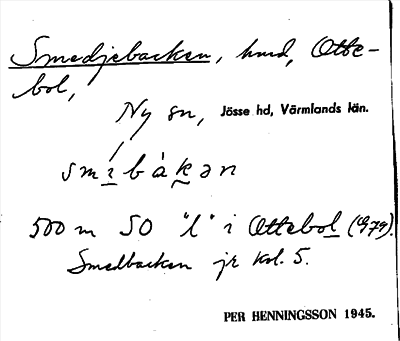 Smedjebacken, hmd, Otte-
bol,
Ny sn, Jösse hd, Värmlands län.
smi̲bàk̲ən
500 m SO "l" i Ottebol (979).
Smedbacken jr kol. 5.
PER HENNINGSSON 1945.